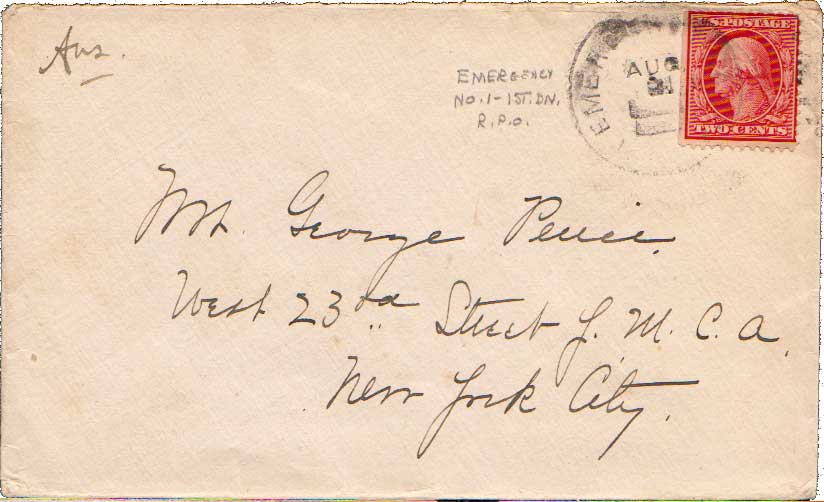 Ans.
EMERGENCY
NO. 1 - 1ST. DN.
R.P.O.
EMER
AUG
U.S. POSTAGE
TWO CENTS
Mr. George
West 23rd Street Y. M. C. A.
New York City.